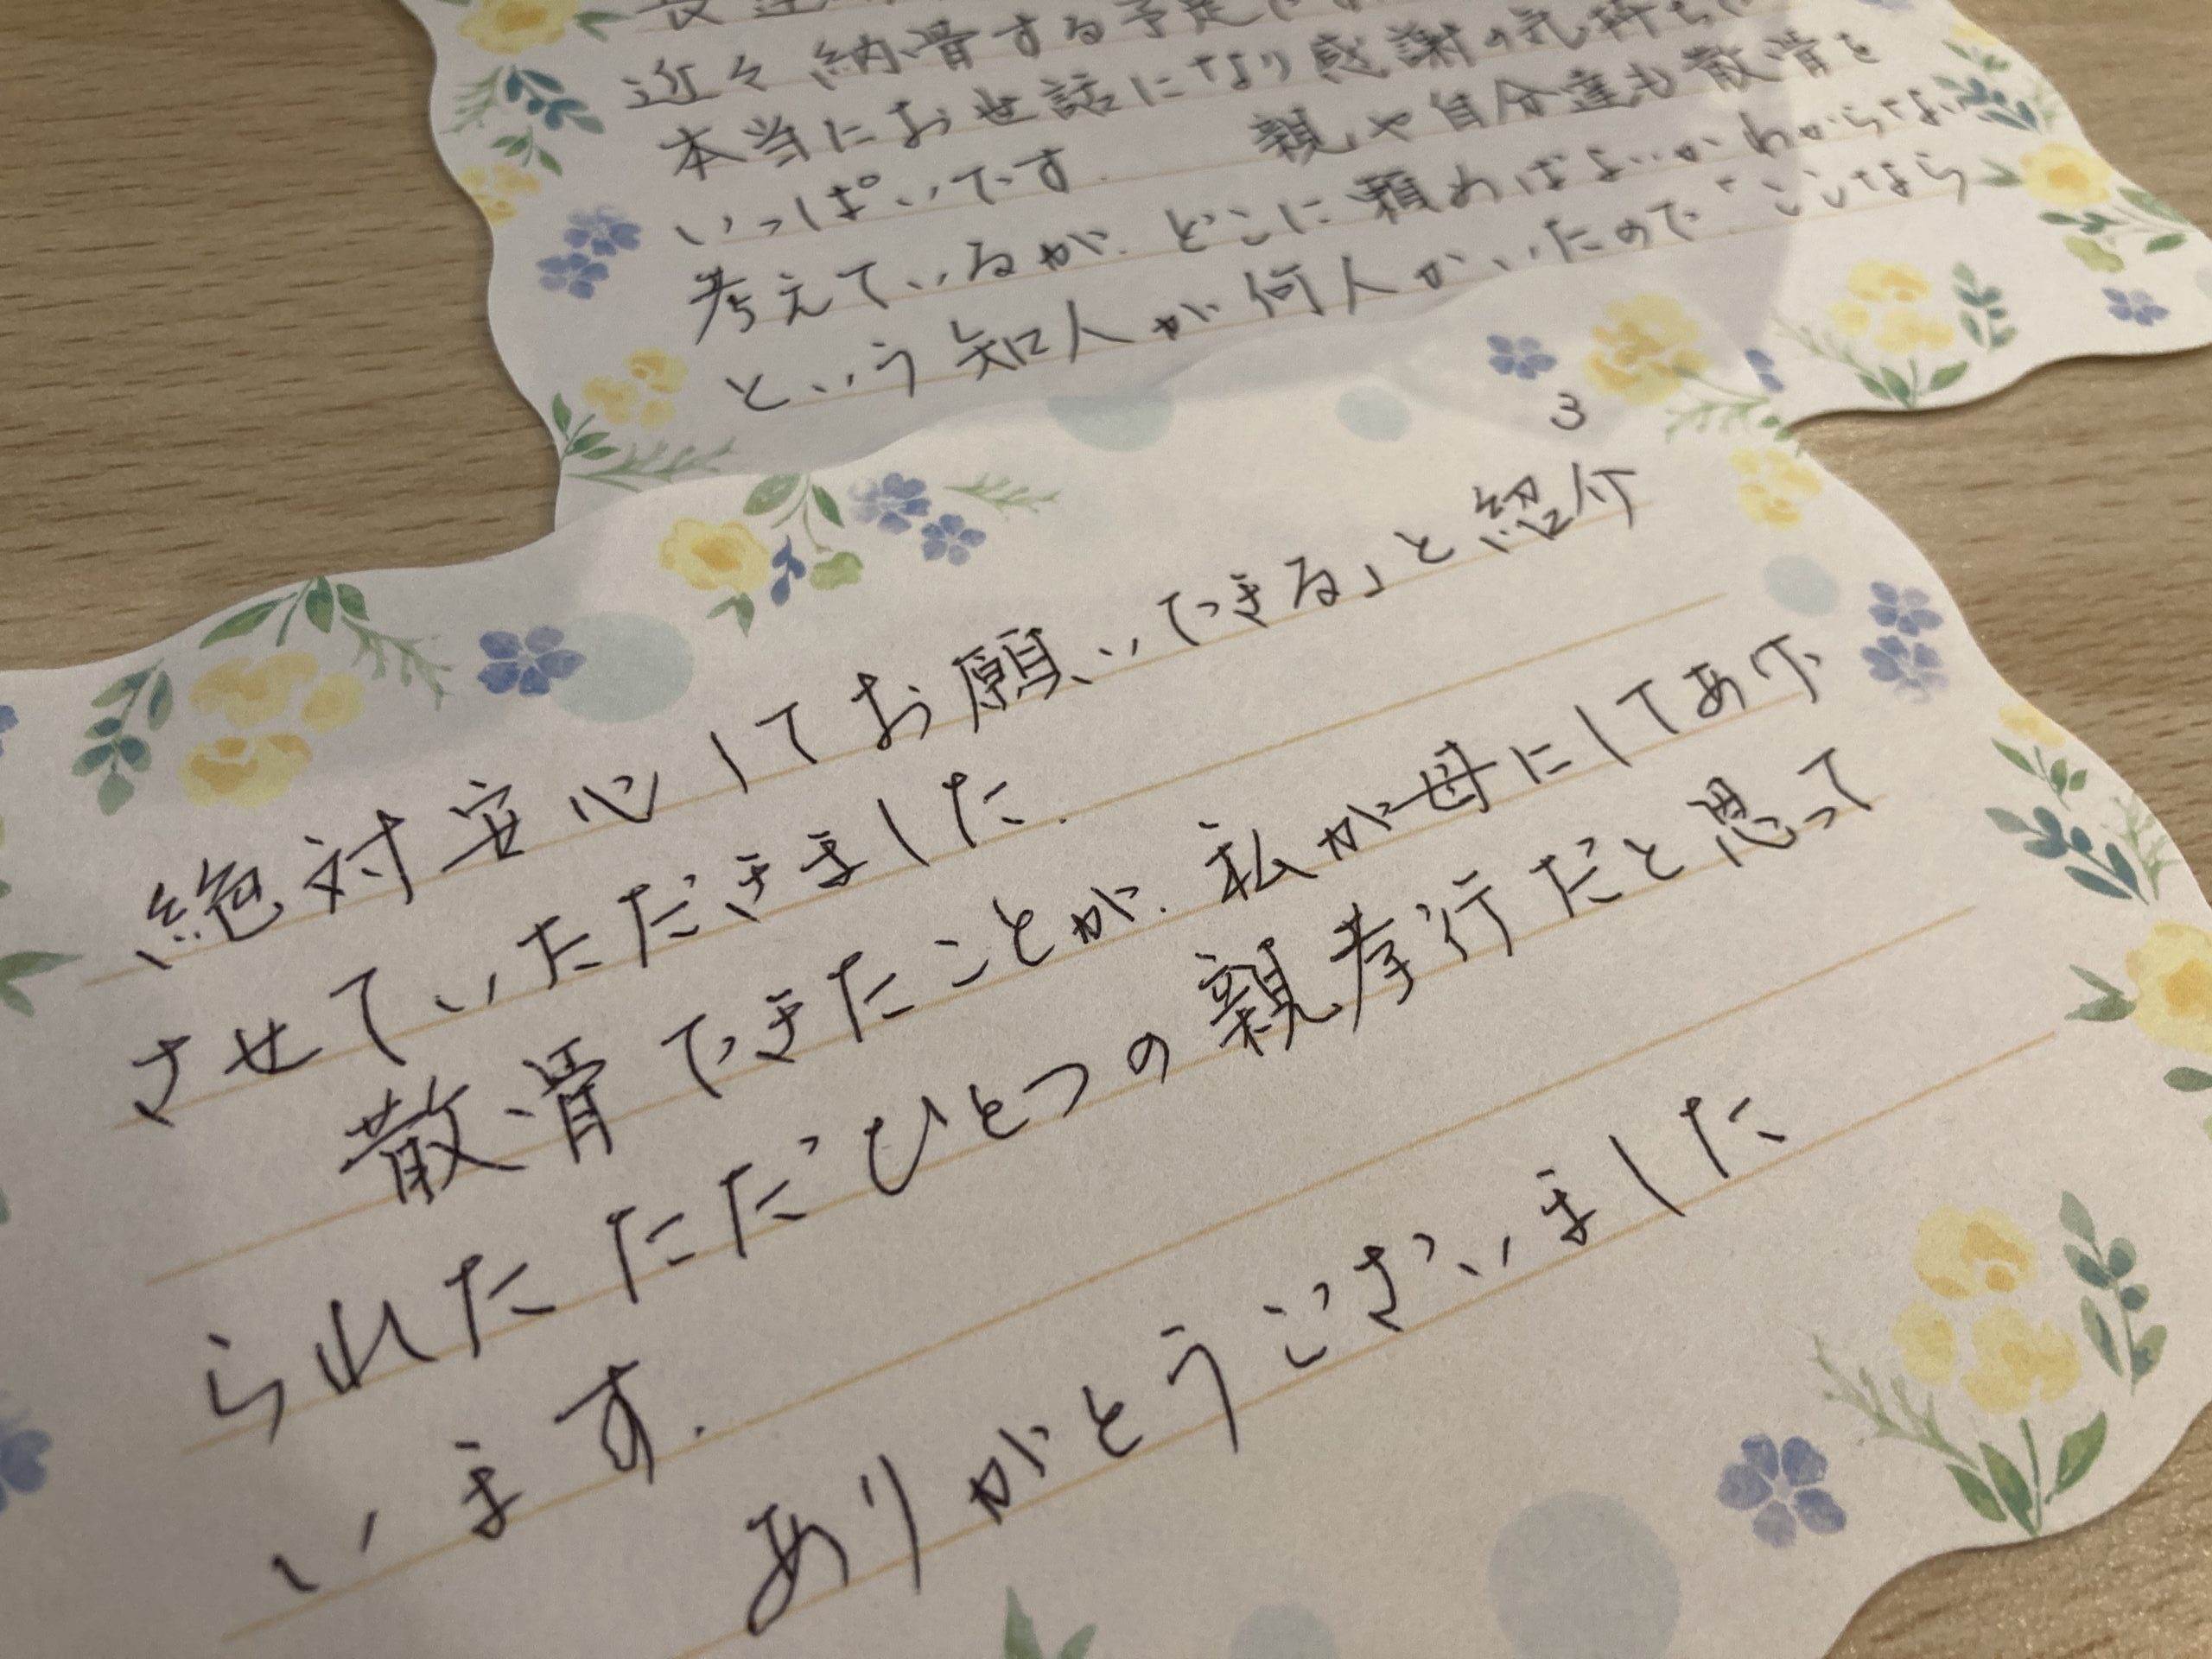 近々納骨する予定
本当にお世話になり感謝の気持ち
いっぱいです. 親や自分達も散骨を
考えているが. どこに頼めばよいかわからない
という知人が何人かいたので「ここなら
3
絶対安心してお願いできる」と紹介
させていただきました.
散骨できたことが. 私が母にしてあげ
られたただひとつの親孝行だと思って
います.
ありがとうございました